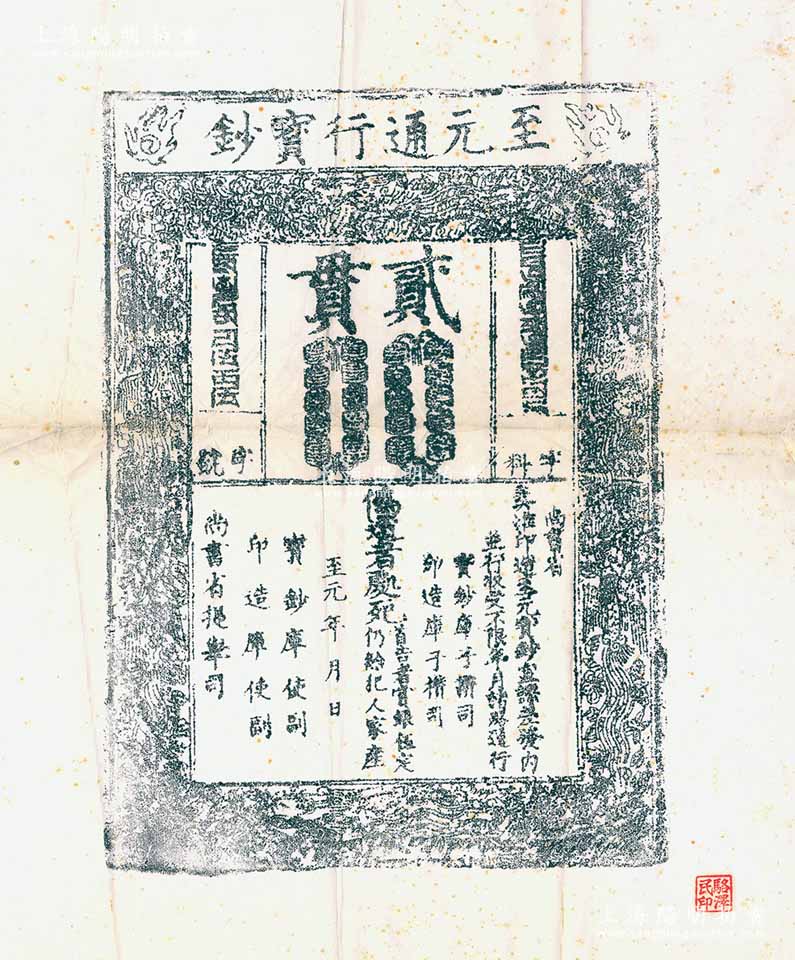 上海陽明拍賣
至元通行寶鈔
貳貫
字料
字號
尚書省
奏准印造至元寶鈔宣課差發內
並行收受不限年月諸路通行
寶鈔庫子攢司
印造庫子攢司
偽造者處死
首告者賞銀伍定
仍給犯人家產
至元 年 月 日
寶鈔庫使副
印造庫使副
尚書省提舉司
駱澤民印
上海陽明拍賣